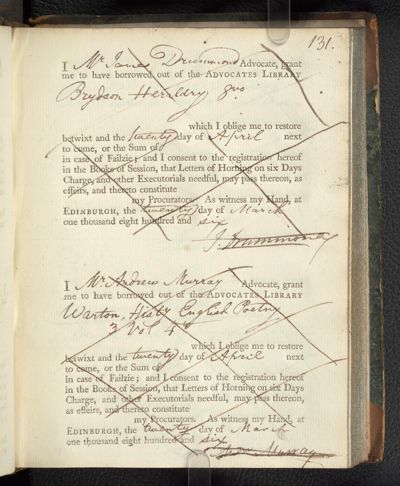 131.
I Mr. James Drummond Advocate, grant
me to have borrowed out of the ADVOCATES LIBRARY
Brydson Heraldry 8vo
which I oblige me to restore
betwixt and the twenty day of April next
to come, or the Sum of
in case of Failzie; and I consent to the registration hereof
in the Books of Session, that Letters of Horning on six Days
Charge, and other Executorials needful, may pass thereon, as
effeirs, and thereto constitute
my Procurators. As witness my Hand, at
EDINBURGH, the twenty day of March
one thousand eight hundred and six
J. Drummond
I Mr. Andrew Murray Advocate, grant
me to have borrowed out of the ADVOCATES LIBRARY
Warton, Histy English Poetry
3 Vol 4o
which I oblige me to restore
betwixt and the twenty day of April next
to come, or the Sum of
in case of Failzie; and I consent to the registration hereof
in the Books of Session, that Letters of Horning on six Days
Charge, and other Executorials needful, may pass thereon,
as effeirs, and thereto constitute
my Procurators. As witness my Hand, at
EDINBURGH, the twenty day of March
one thousand eight hundred and six
Andw Murray